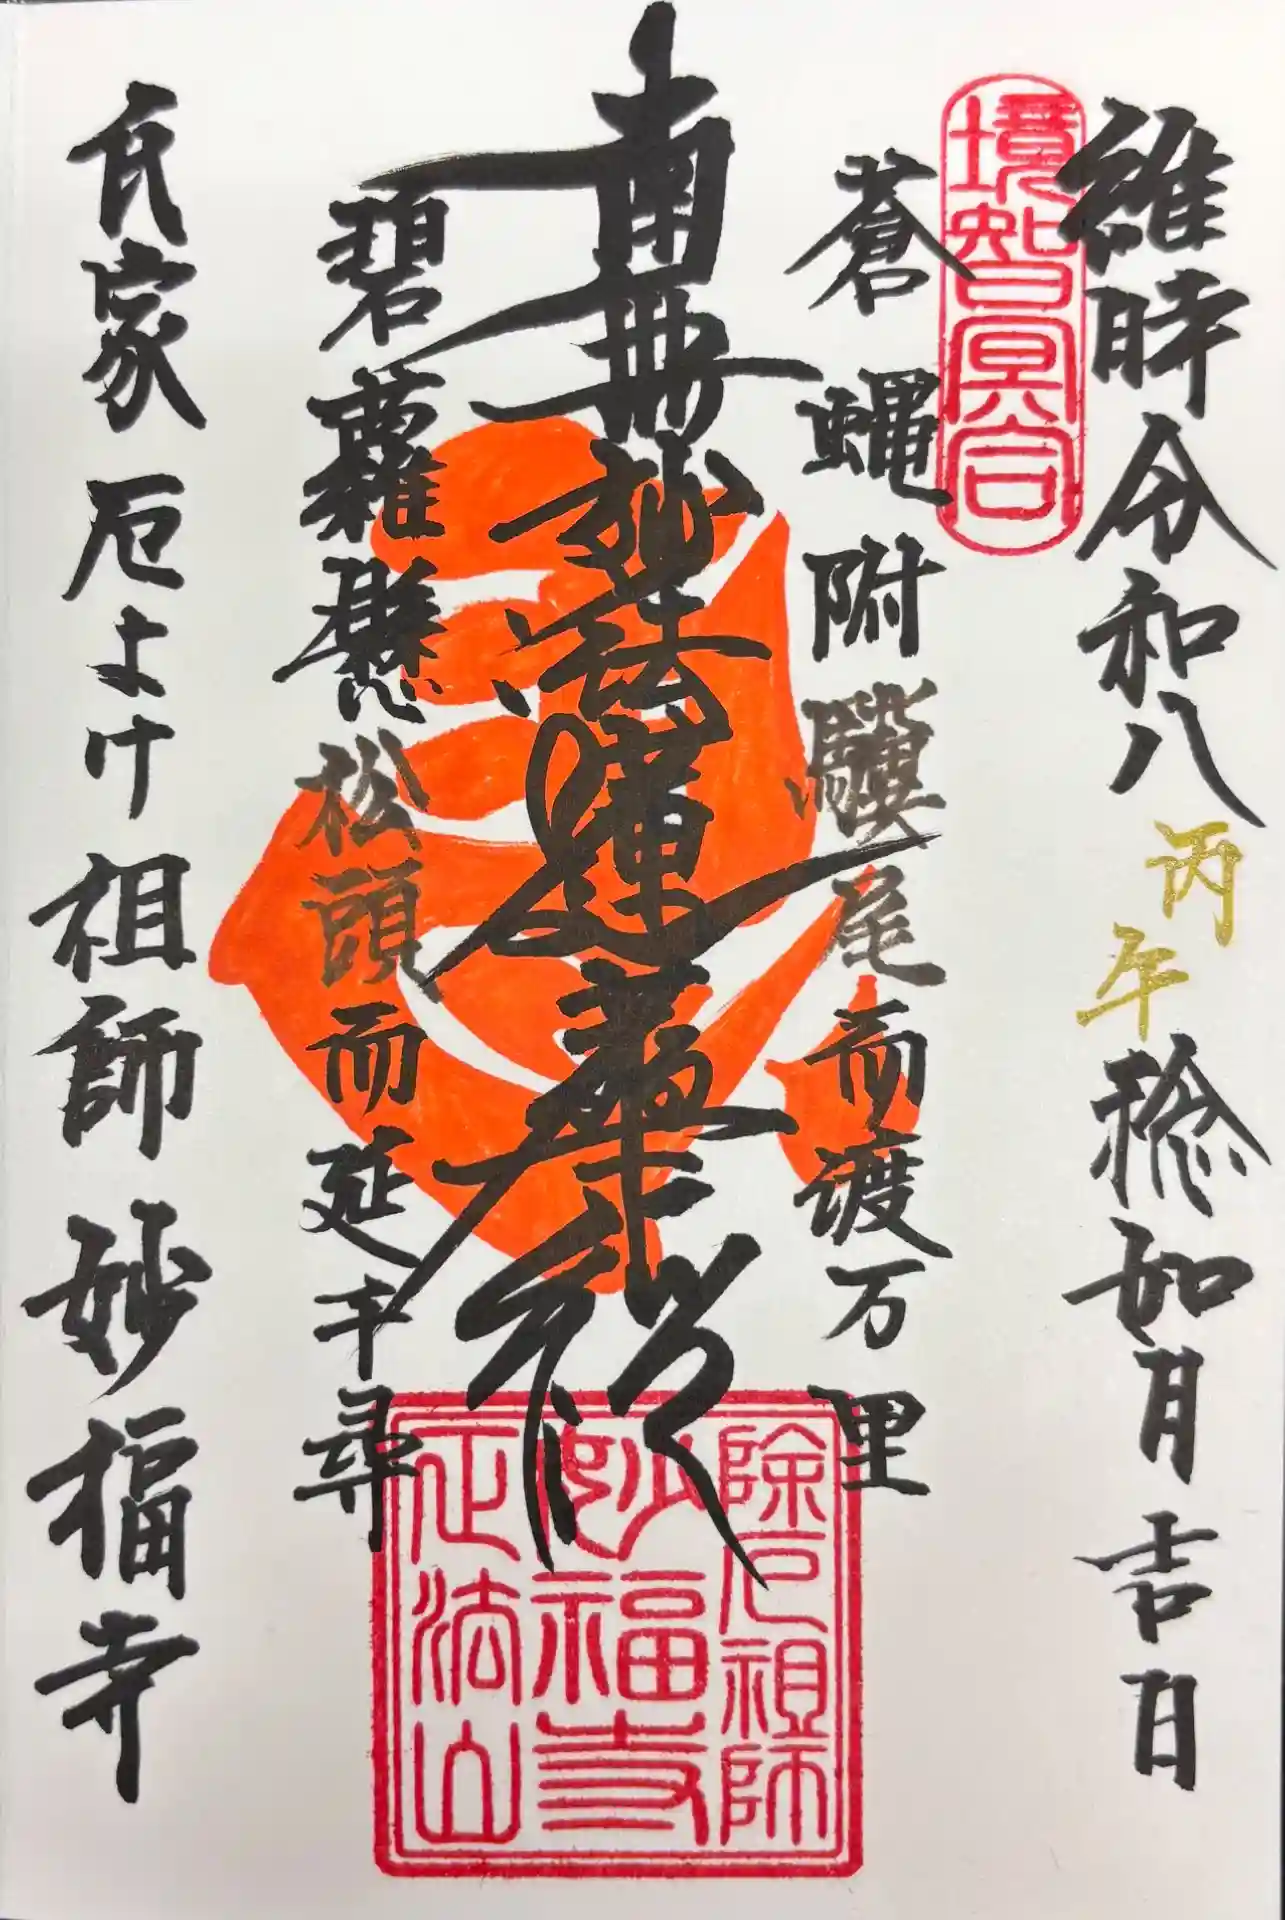 維時令和八丙午稔如月吉日
境智冥合
蒼蝿附驥尾而渡万里
南無妙法蓮華経
碧蘿懸松頭而延千尋
氏家 厄よけ祖師 妙福寺
除厄祖師
妙福寺
正法山